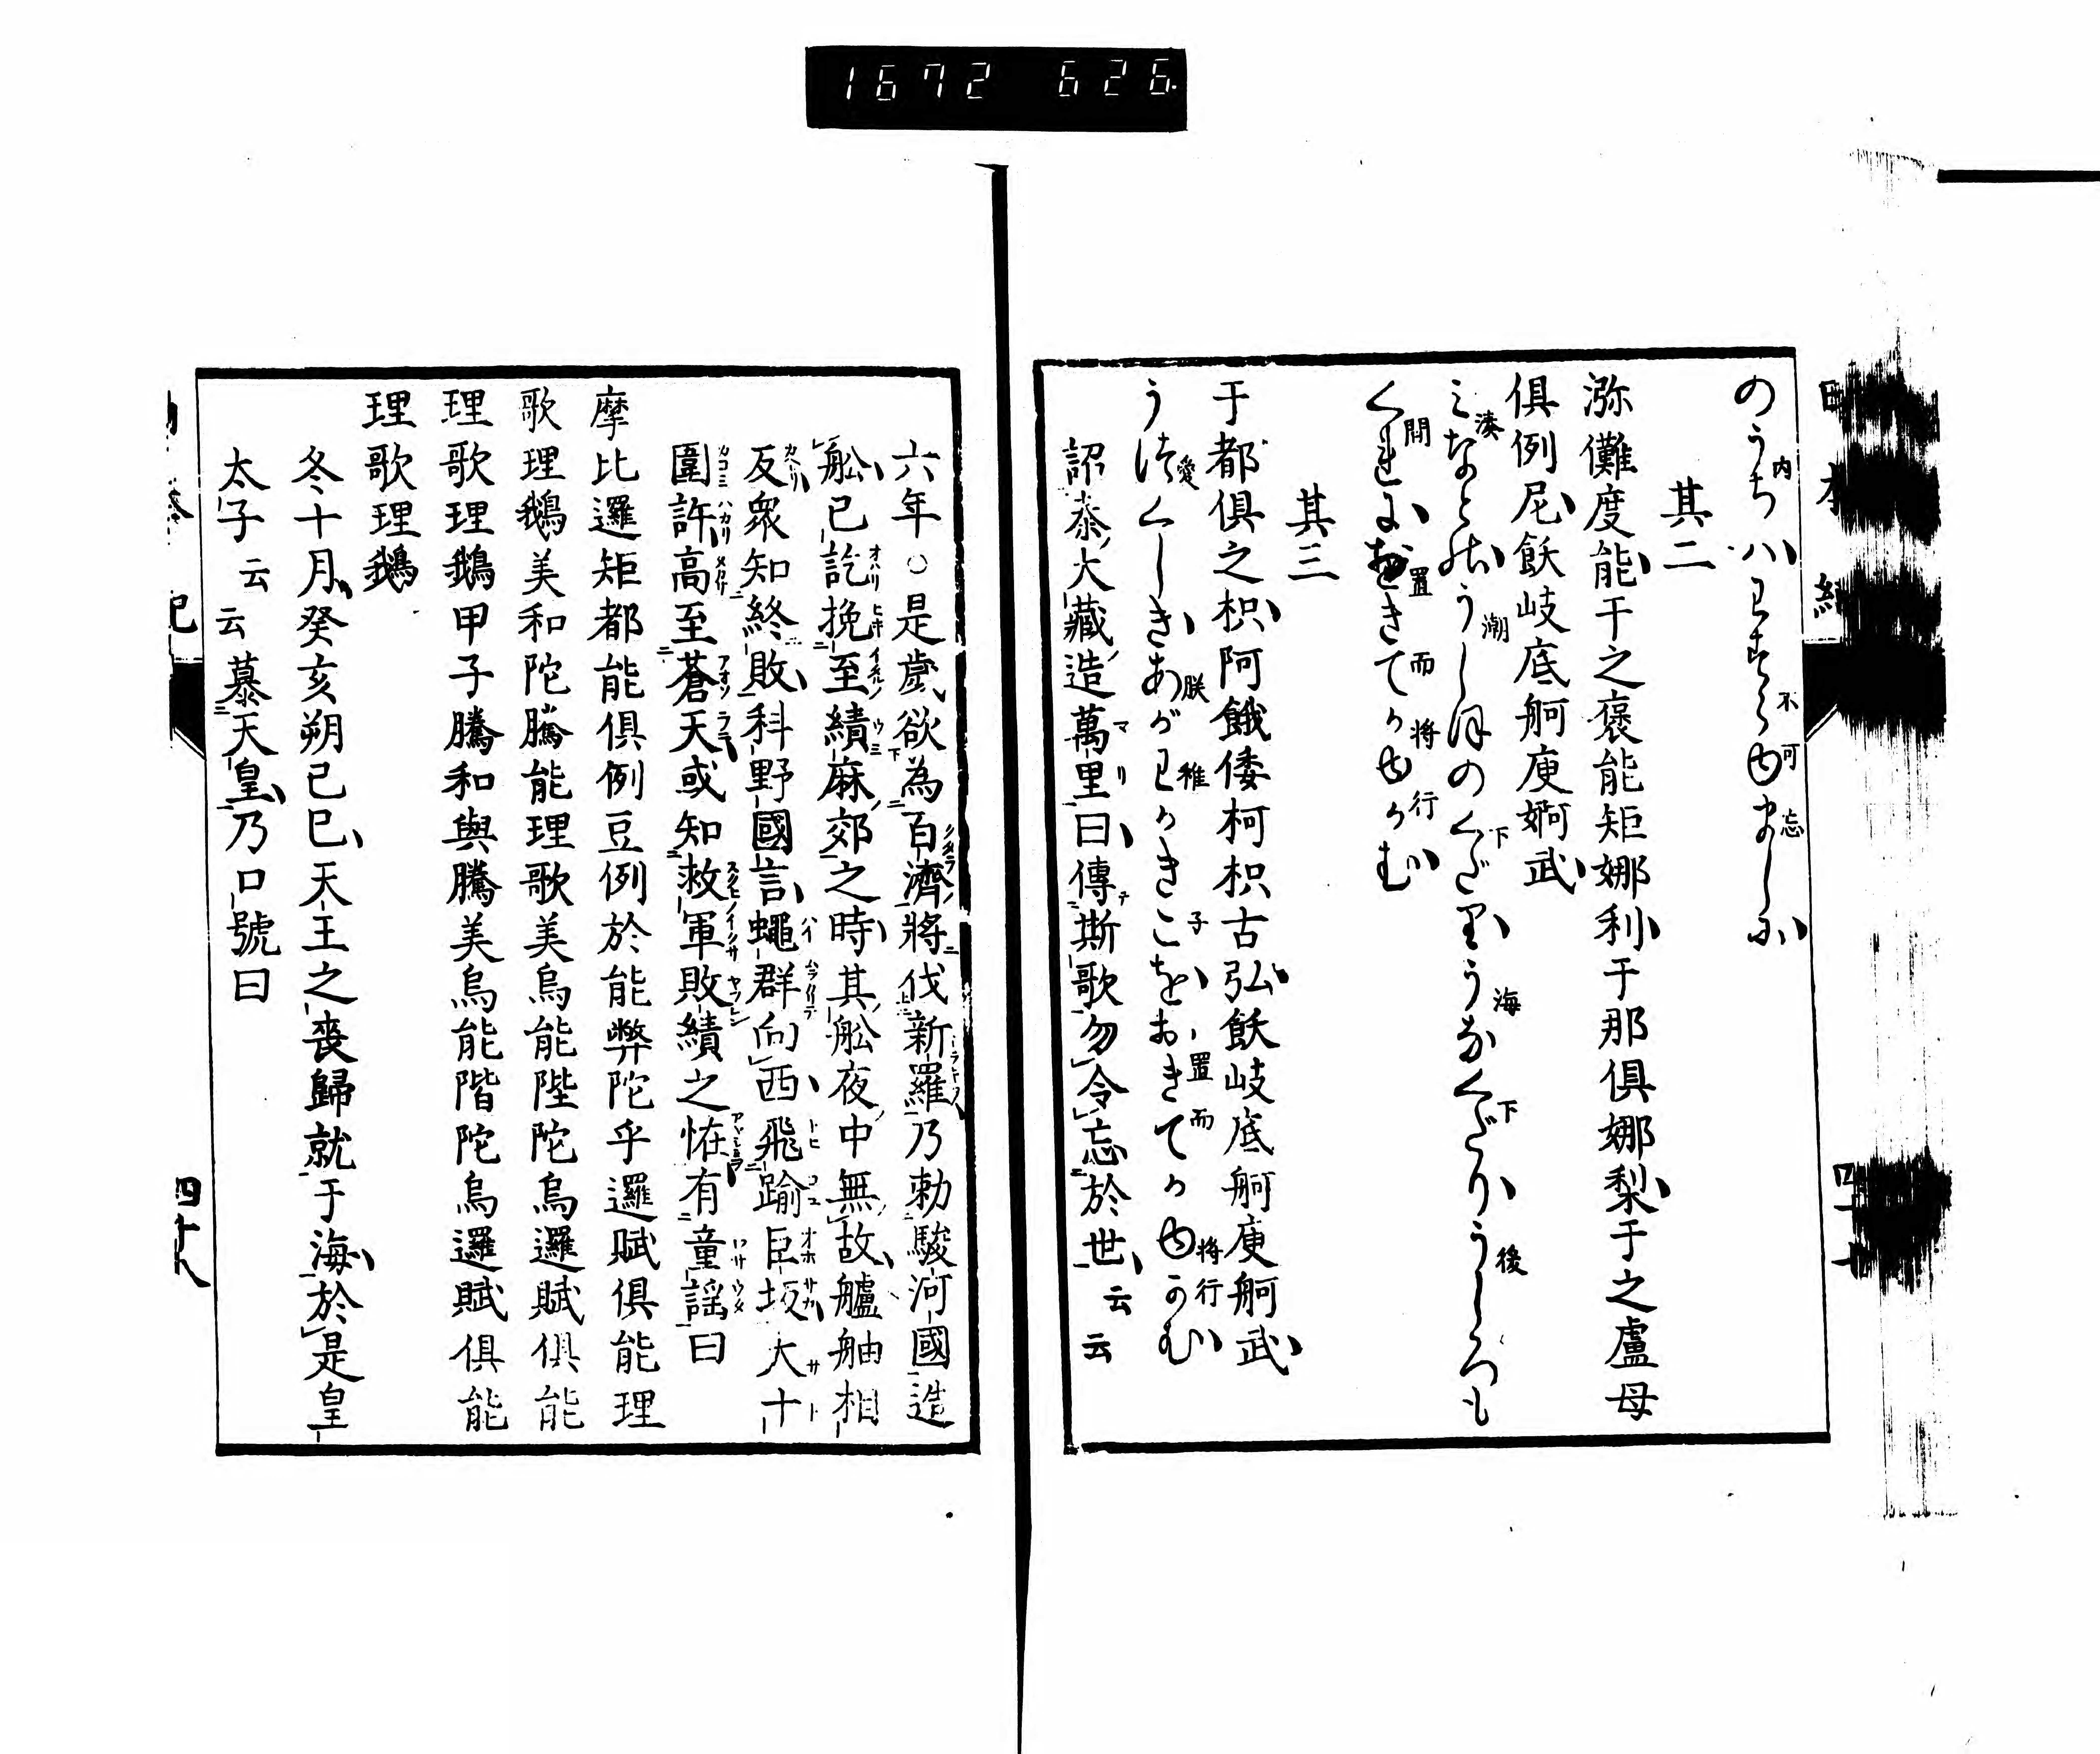 1672 626
のうちハわすらゆましゝ
其二
瀰儺度能于之褒能矩娜利于那俱娜梨于之盧母
俱例尼飫岐底舸庾婀武
みなとのうしほのくだりうなくだりうしろも
くれにおきてかゆかむ
其三
于都俱之枳阿餓倭柯枳古弘飫岐底舸庾舸武
うつくしきあがわかきこをおきてかゆかむ
詔泰大藏造萬里曰傳斯歌勿令忘於世云云
六年○是歲欲為百濟將伐新羅乃勅駿河國造
舩已訖挽至績麻郊之時其舩夜中無故艫舳相
反衆知終敗科野國言蠅群向西飛踰巨坂大十
圍許高至蒼天或知救軍敗績之恠有童謠曰
摩比邏矩都能俱例豆例於能弊陀乎邏賦俱能理
歌理鵝美和陀騰能理歌美烏能陛陀烏邏賦俱能
理歌理鵝甲子騰和與騰美烏能陛陀烏邏賦俱能
理歌理鵝
冬十月癸亥朔己巳天王之喪歸就于海於是皇
太子云云慕天皇乃口號曰
四十八